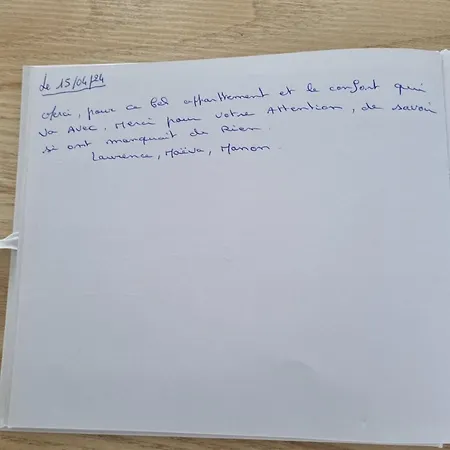 Le 15/04/24
Merci, pour ce bel apparttement et le confort qui
va Avec, Merci pour votre Attention, de savoir
si ont manquait de Rien.
Laurence, Maëva, Manon.